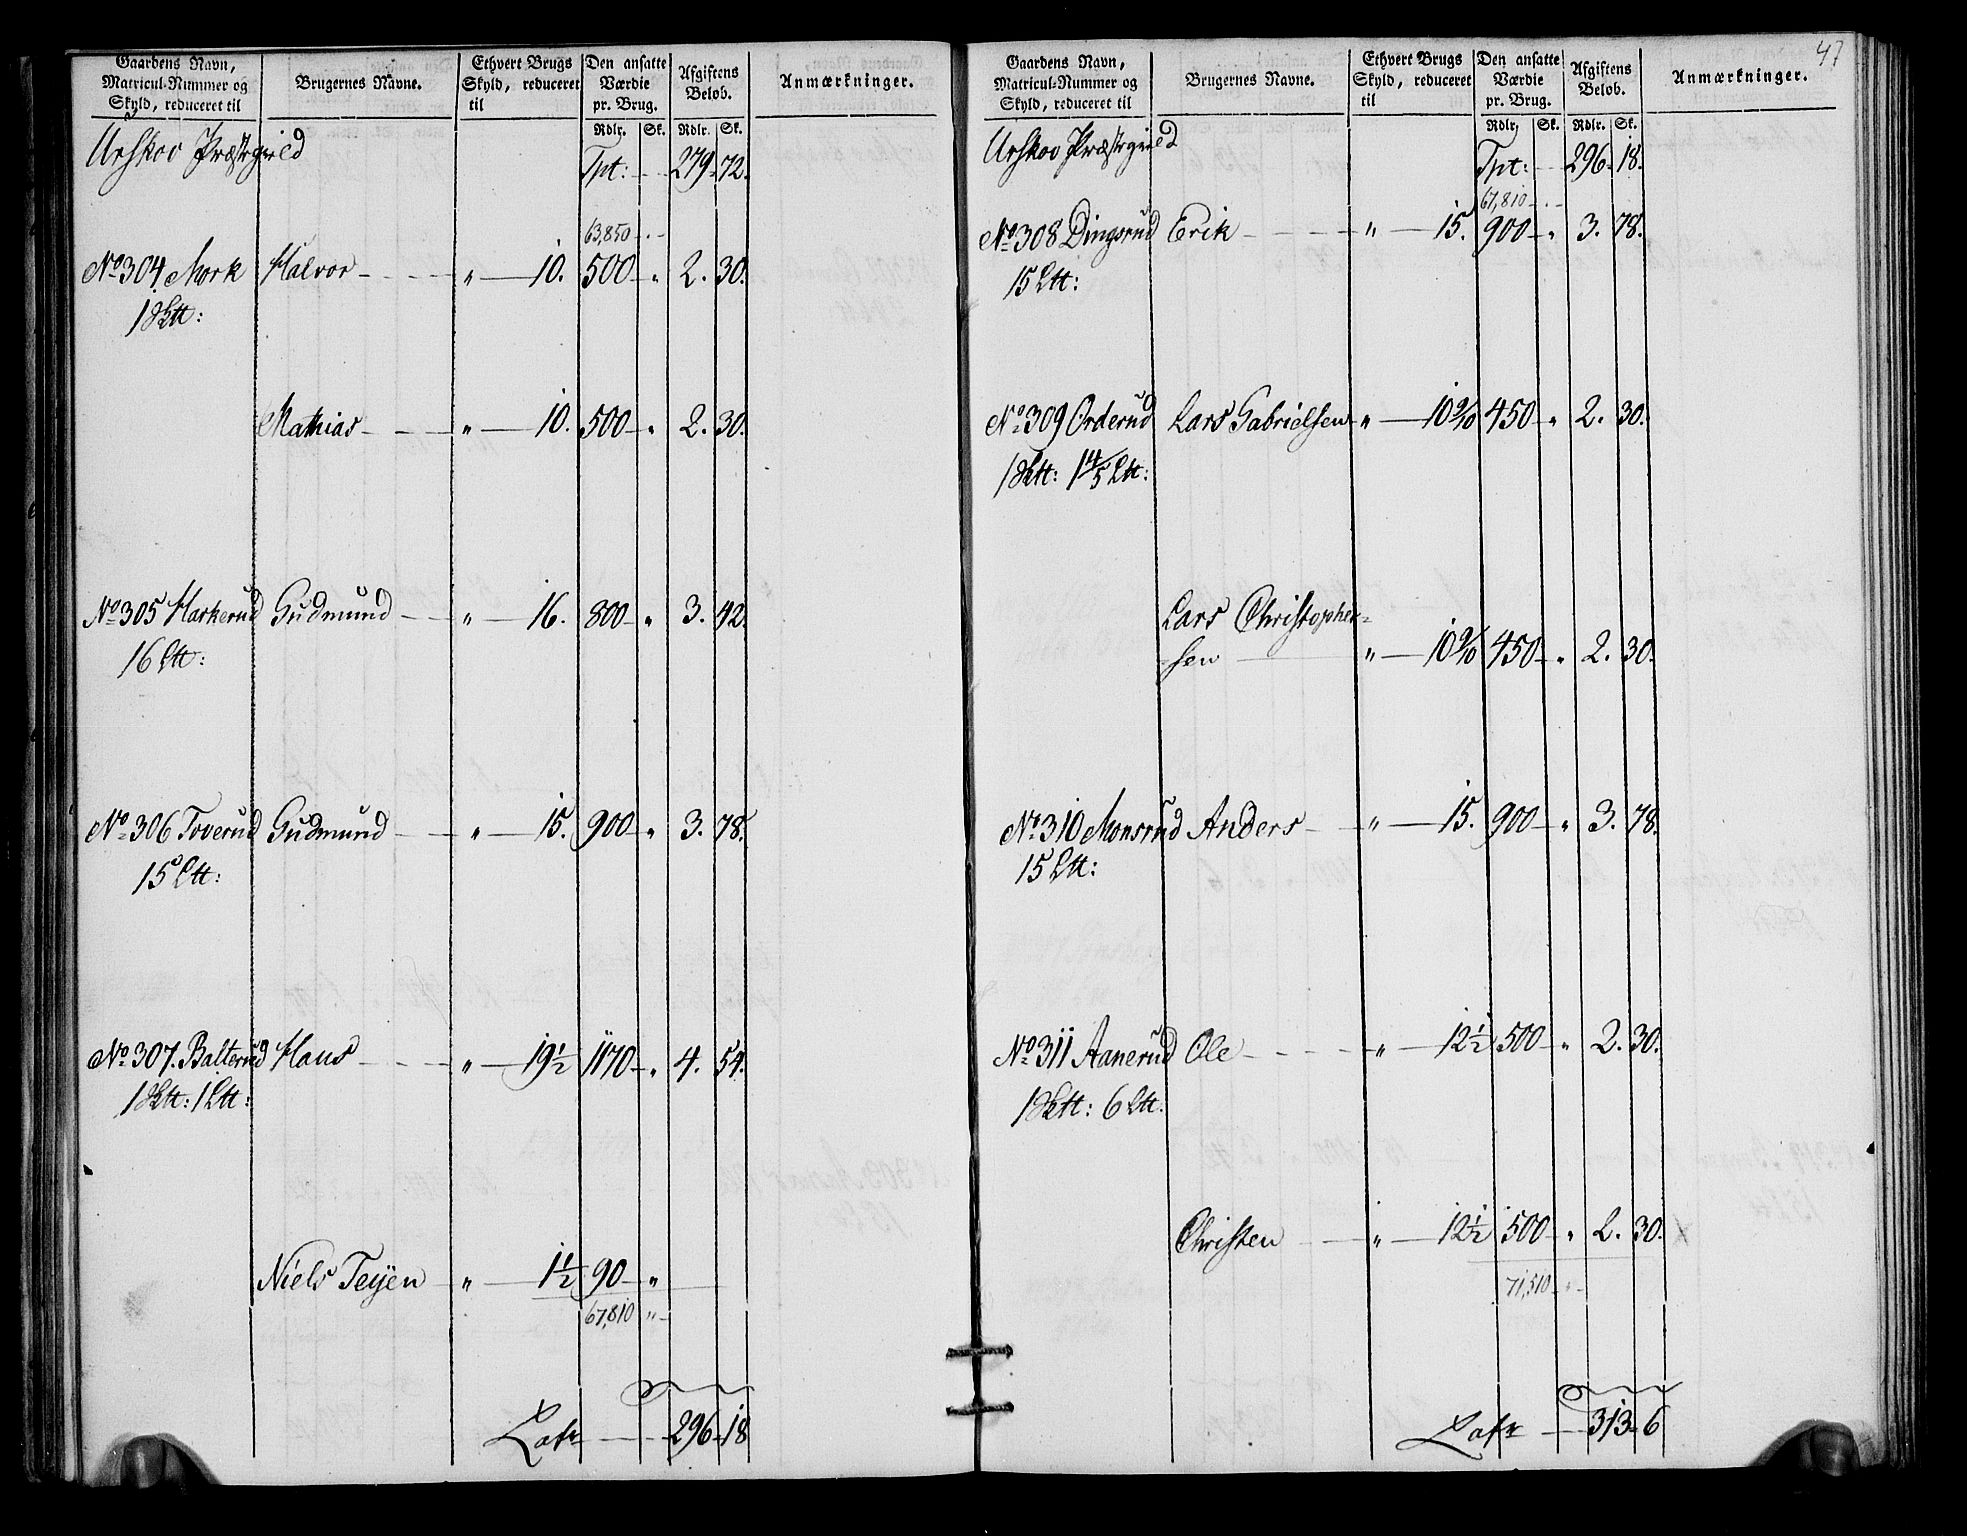 Gaardens Navn, Matricul-Nummer og Skyld, reduceret til | Brugernes Navne. | Ethvert Brugs Skyld, reduceret til | Den ansatte Værdie pr. Brug. | Afgiftens Beløb. | Anmærkninger.
Rdlr. | Sk. | Rdlr. | Sk.
Urskov Præstegield | Tpt: | 279. 72.
63,850
No 304 Mork | Halvor | " 10. | 500 " | 2. 30.
1 Sktt:
Mathias | " 10. | 500 " | 2. 30.
No 305 Harkerud | Gudmund | " 16. | 800 " | 3. 42.
16 Ltt:
No 306 Toverud | Gudmund | " 15. | 900 " | 3. 78.
15 Ltt:
No 307. Balterud | Hans | " 19½ | 1170 " | 4. 54.
1 Sktt: 1 Ltt:
Niels Teyen | " 1½ | 90 "
67,810 "
Latr | 296 18
47
Gaardens Navn, Matricul-Nummer og Skyld, reduceret til | Brugernes Navne. | Ethvert Brugs Skyld, reduceret til | Den ansatte Værdie pr. Brug. | Afgiftens Beløb. | Anmærkninger.
Rdlr. | Sk. | Rdlr. | Sk.
Urskov Præstegield | Tpt: | 296. 18.
67,810
No 308 Dingsrud | Erik | " 15. | 900 " | 3. 78.
15 Ltt:
No 309 Orderud | Lars Gabrielsen | " 10 9/10 | 450 " | 2. 30.
1 Sktt: 1 4/5 Ltt:
Lars Christopher=
sen | " 10 9/10 | 450 " | 2. 30.
No 310 Monsrud | Anders | " 15. | 900 " | 3. 78.
15 Ltt:
No 311 Aanerud | Ole | " 12½ | 500 " | 2. 30.
1 Sktt: 6 Ltt:
Christen | " 12½ | 500 " | 2. 30.
71,510 "
Latr | 313 6